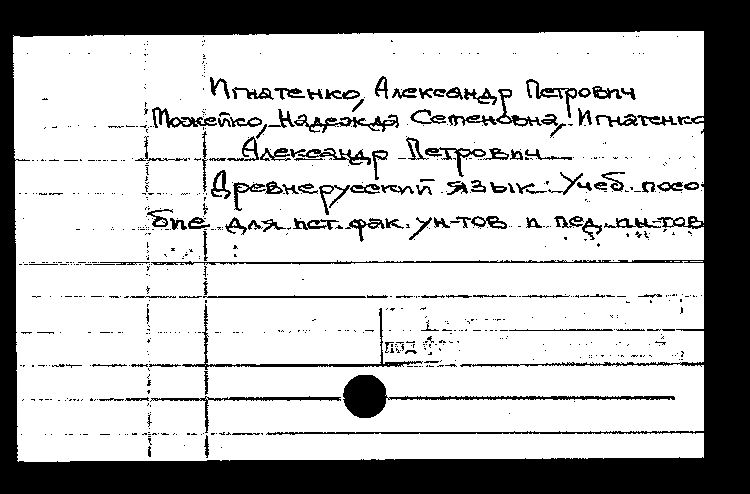 Игнатенко, Александр Петрович
Можейко, Надежда Семеновна, Игнатенко
Александр Петрович
Древнерусский язык: Учеб. посо-
бие для ист. фак. ун-тов и пед. ин-тов